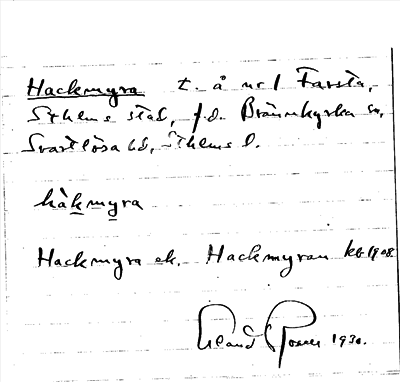 Hackmyra t. å nr 1 Farsta,
Sthlms stad, f.d. Brännkyrka sn,
Svartlösa hd, Sthlms l.
håkmyra
Hackmyra ek. Hackmyran kb 1908.
Erland Rosell 1930.